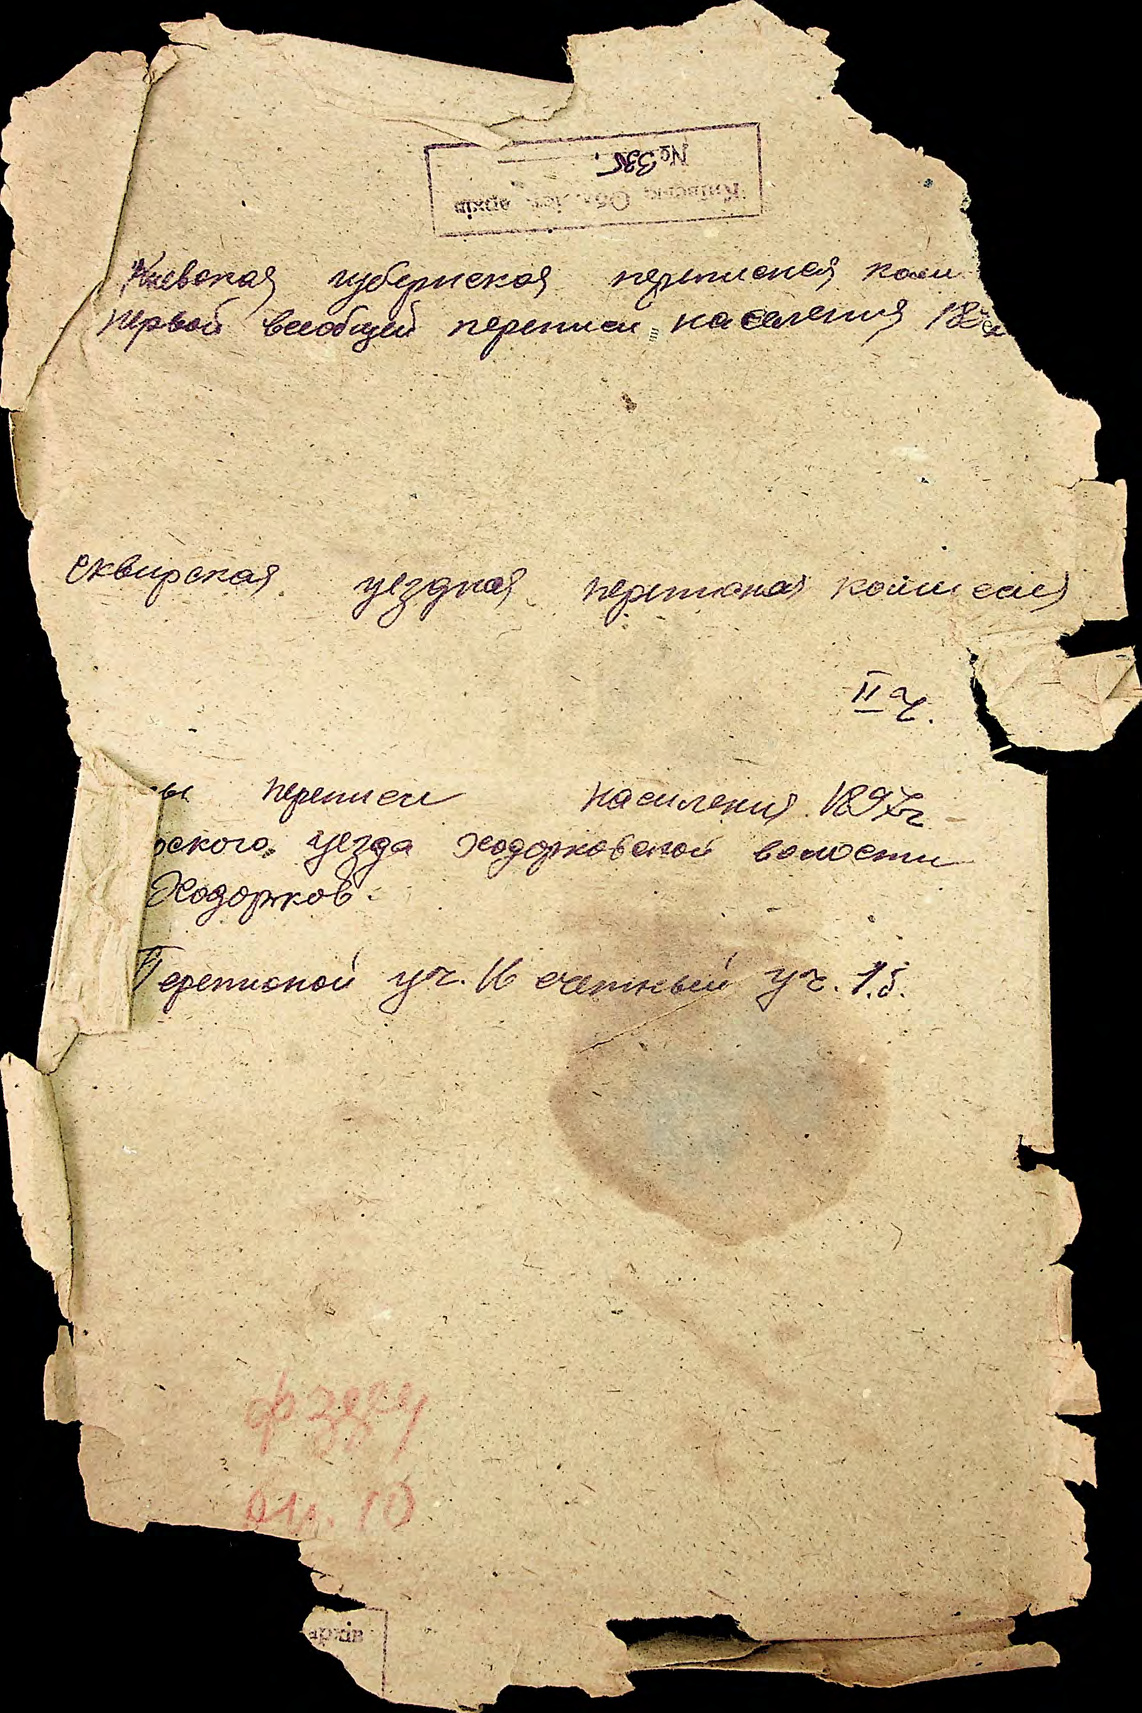 № 335
Київськ. Обл. іст. архів
Киевская губернская переписная коми
первой всеобщей переписи населения 18
сквирская уездная переписная комиссия
II ч.
ы переписи населения 1897г
рского уезда Ходорковской волости
Ходорков.
Переписной уч. 16 счетный уч. 15.
оп. 10
архів